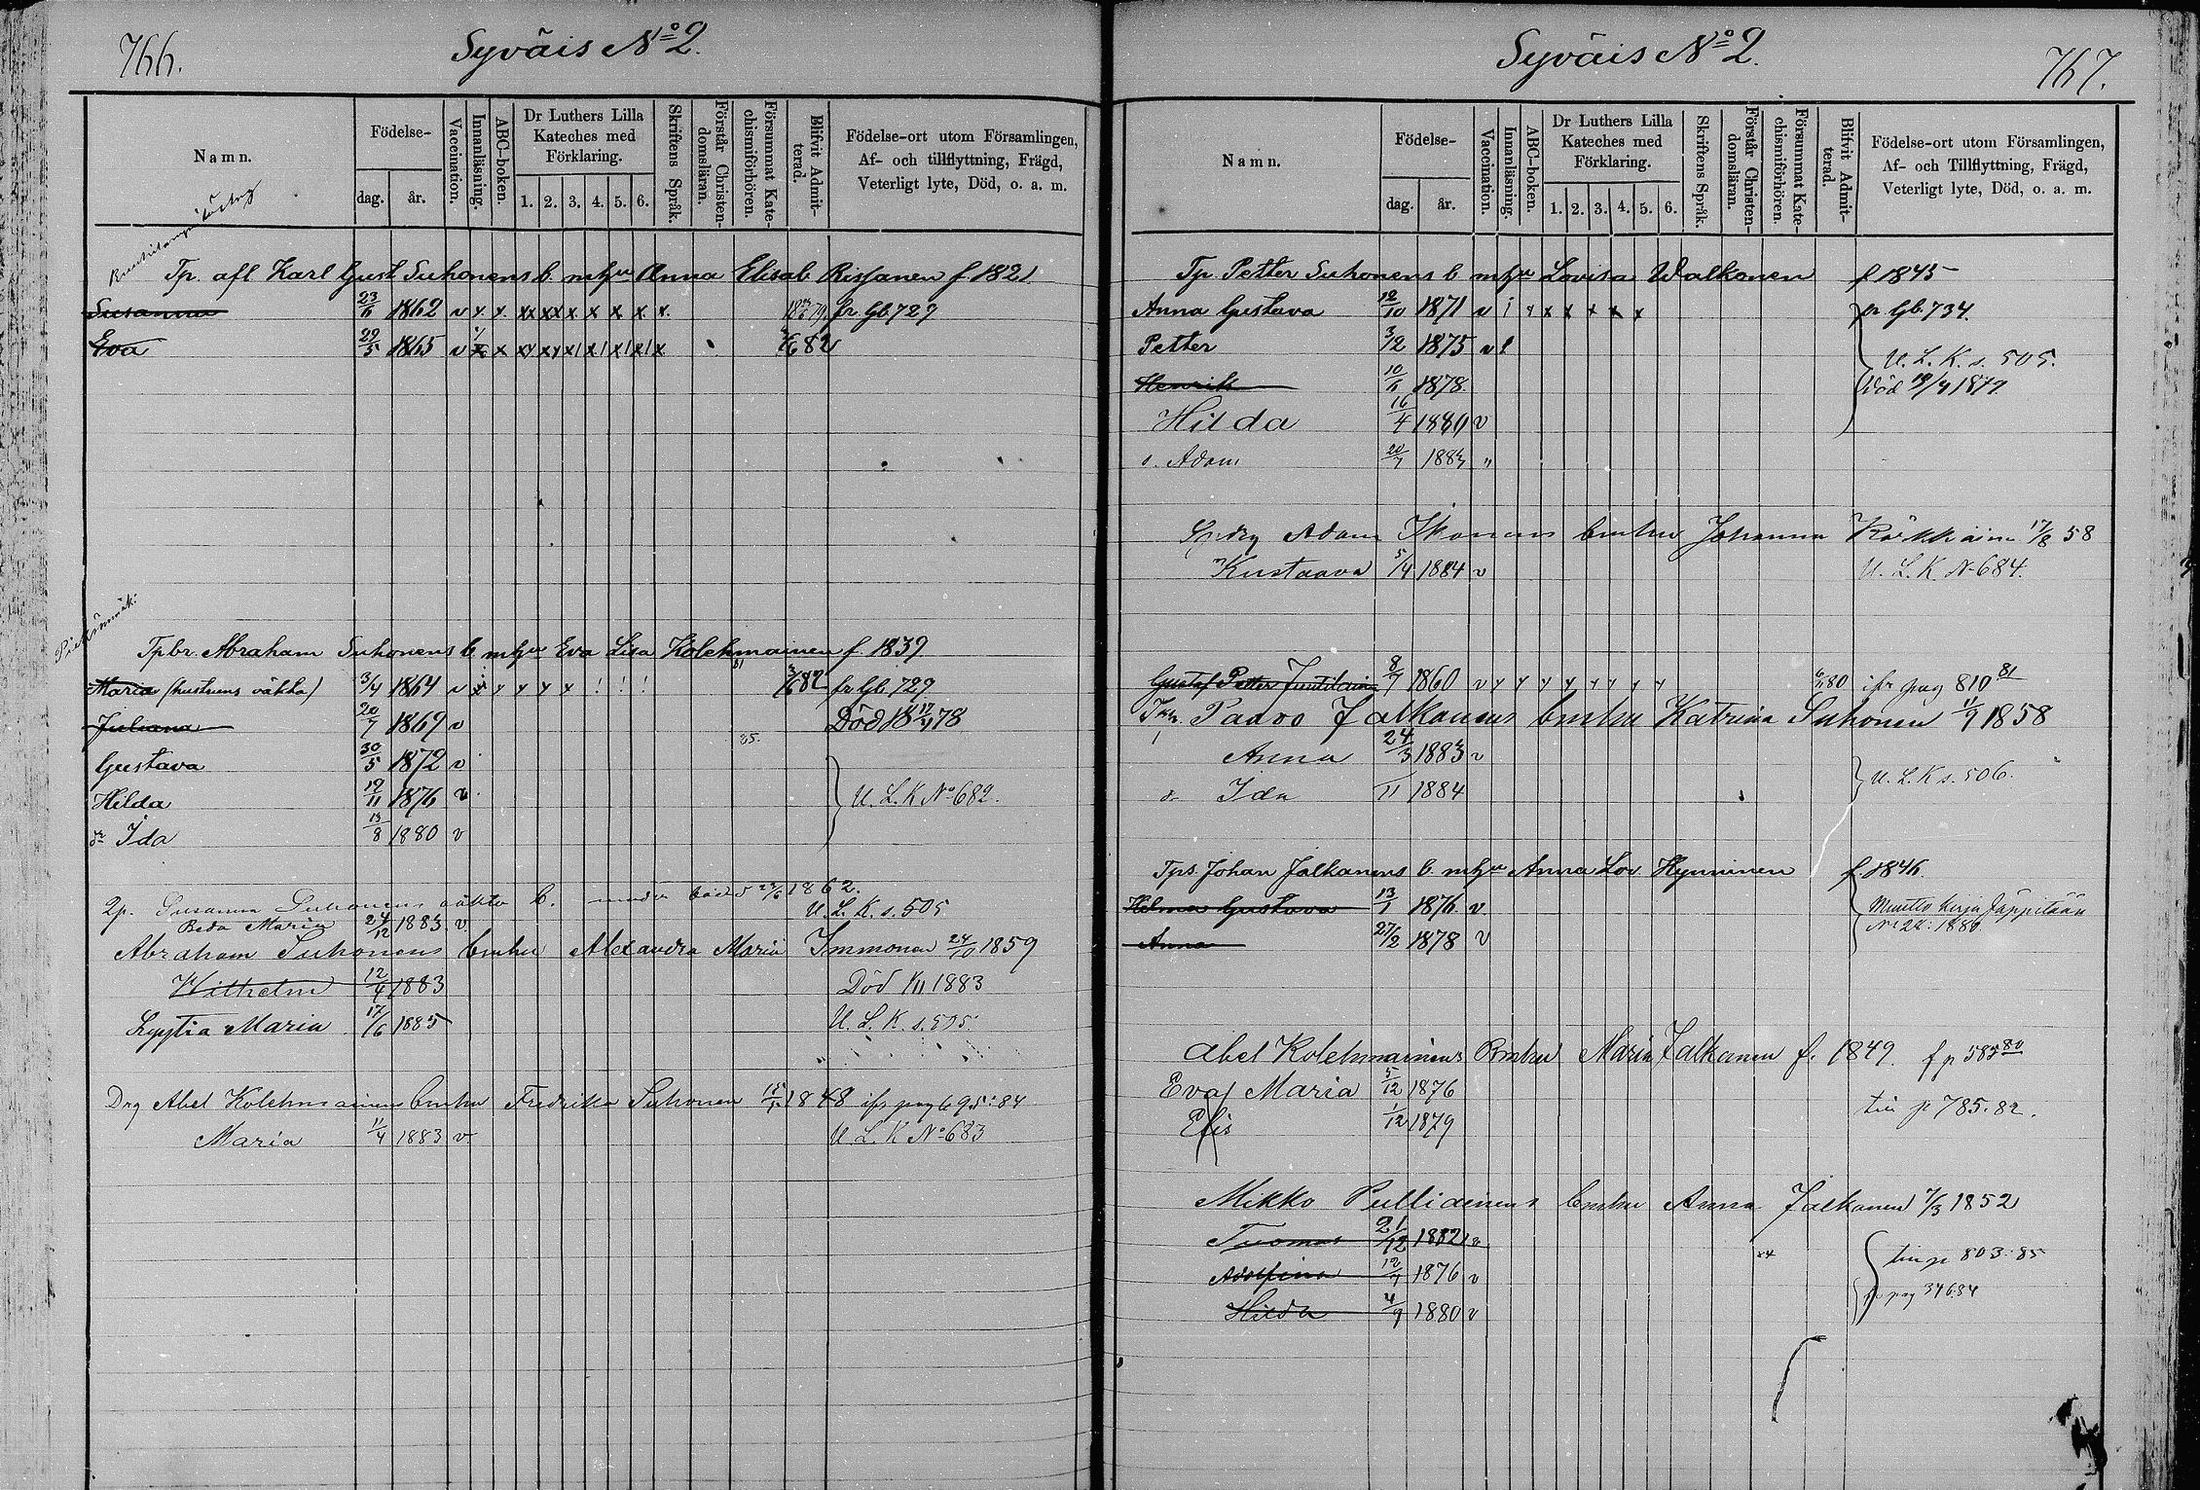 766.
Syväis Nº 2.
Namn.
Födelse-
dag.
år.
Vaccination.
Innanläsning.
ABC-boken.
Dr Luthers Lilla Kateches med Förklaring.
1. 2. 3. 4. 5. 6.
Skriftens Språk.
Förstår Christendomsläran.
Försummat Katechismiförhören.
Blifvit Admitterad.
Födelse-ort utom Församlingen, Af- och tillflyttning, Frägd, Veterligt lyte, Död, o. a. m.
Tp. afl Karl Gust. Suhonens b. m hu Anna Elisab. Rissanen f. 1821
Susanna 23/6 1862 v x x xx xx x x x x x fr Gb 729
Eva 29/5 1865 v x x 682
Tpbr. Abraham Suhonens b. m hu Eva Lisa Kolehmainen f. 1839
Maria (hustruns oäkta) 3/4 1864 v 682 fr Gb. 729
Juliana 20/7 1869 v Död 78
Gustava 30/5 1872 v
85.
Hilda 19/11 1876 v U. L. K Nº 682.
dr Ida 13/8 1880 v
Tp. Susanna Suhonens oäkta b. 1862.
Beda Maria 24/12 1883 v U. L. K. s. 505
Abraham Suhonens bmhu Alexandra Maria Immonen 24/10 1859
Wilhelm 12/4 1883 Död 1883
Maria 17/6 1885 U. L. K. s. 505.
Drg Abel Kolehmainens bmhu Fredrika Suhonen 1848 ifr pag 695:84
Maria 11/4 1883 v U. L. K Nº 683
Syväis Nº 2.
767.
Namn.
Födelse-
dag.
år.
Vaccination.
Innanläsning.
ABC-boken.
Dr Luthers Lilla Kateches med Förklaring.
1. 2. 3. 4. 5. 6.
Skriftens Språk.
Förstår Christendomsläran.
Försummat Katechismiförhören.
Blifvit Admitterad.
Födelse-ort utom Församlingen, Af- och Tillflyttning, Frägd, Veterligt lyte, Död, o. a. m.
Tp. Petter Suhonens b. m hu Lovisa Walkonen f. 1845
Anna Gustava 12/10 1871 v fr Gb. 734.
Petter 3/12 1875 v U. L. K. s. 505.
Henrik 10/6 1878. Död 19/4 1879.
Hilda 16/4 1880 v
s. Adam 20/7 1883 "
Adam Ikonens bmhu Johanna 17/8 58
Kustaava 5/4 1884 v U. L. K. N 684.
Gustaf Petter 8/7 1860 v 80 ifr pag 810 81
Paavo Jalkanens bmhu Katriina Suhonen 11/9 1858
Anna 24/3 1883 v
dr Ida 11 1884 U. L. K s. 506.
Tps. Johan Jalkanens b. m hu Anna Lov. Hynninen f. 1846.
Hilma Gustava 13/1 1876 v
Anna 27/2 1878 v Nº 22: 1886
Abel Kolehmainens Bmhu Maria Jalkanen f. 1849. f p 585 80
Eva Maria 5/12 1876
Elis 1/12 1879 785. 82.
Mikko Pulliainens bmhu Anna Jalkanen 7/3 1852
Tuomas 21/12 1882 v
84
803:85
Adolfina 12/7 1876 v
Hilda 4/9 1880 v pag 346 84